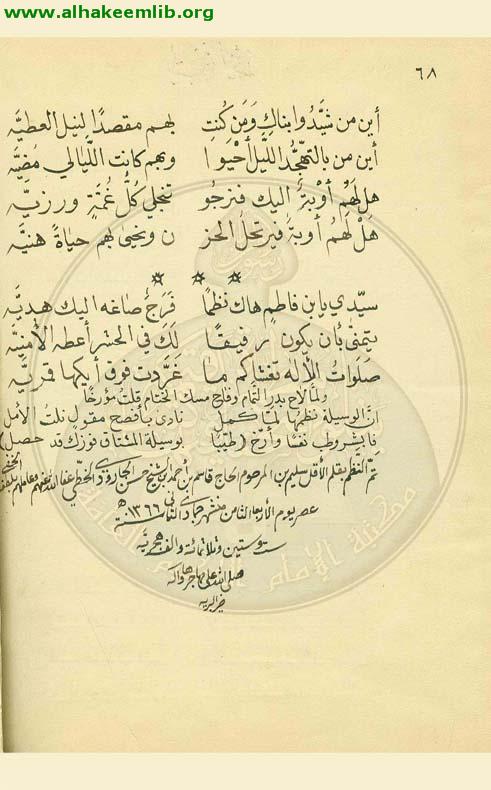 www.alhakeemlib.org
٦٨
أين من شيَّدوا بناكِ وَمَن كُنتِ بهم مقصدًا لنيل العطيَّه
أين من بالتهجُّد اللَّيل أحْيَوا وبهم كانت اللَّيالي مُضيَّه
هل لَهُم أوبَةٌ اليك فنرجُو تنجلي كلُّ غُمَّةٍ ورزيَّه
هَلْ لَهُمُ أوبةٌ فيرتحلُ الحز ن ونحيى بهم حياةً هنيَّه
سيِّدي يا بن فاطمٍ هاك نظمًا فَرَجٌ صاغه اليك هديَّه
يتمنَّى بأن يكون رفيقًا لكَ في الحشر أعطه الأمنيَّه
صَلَواتُ الأِله تغشاكم ما غَرَّدت فوق أيكها قمريَّه
ولما لاح بدر التمام وفاح مسك الختام قلت مؤرخًا
انَّ الوسيلة نظمها لمّا كمل نادى بأفصح مقولٍ نلتُ الأمل
فابشر وطب نفسًا وأرِّخ (طيّبًا بوسيلة المشتاق فوزك قد حصل)
تمّ النظم بقلم الأقل سليم بن المرحوم الحاج قاسم بن أحمد بن الشيخ حسن الجارودي الخطّي عفا الله عنهم وعاملهم بلطفه الخفي
عصر يوم الأربعاء الثامن من شهر جمادى الثاني ١٣٦٦هـ
ست وستين وثلاثمائة والف هجريَّه
صلى الله على مهاجرها وآله
خير البريه